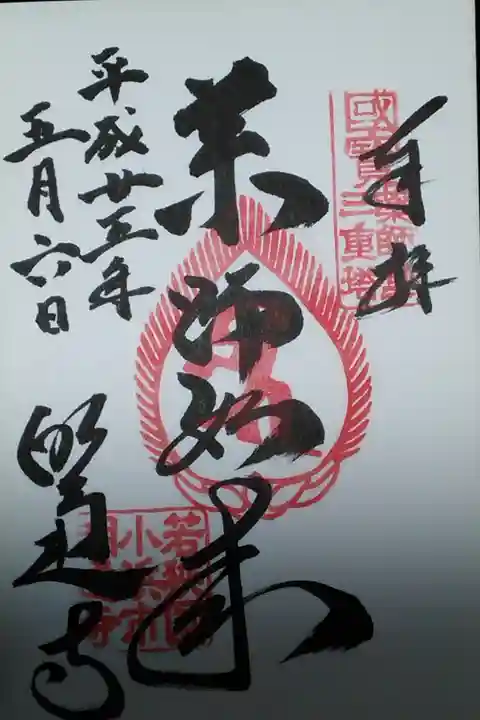 奉拝
薬師堂
國寶三重塔
薬師如来
平成廿五年
五月六日
若狭國
小浜市
明通寺
明通寺